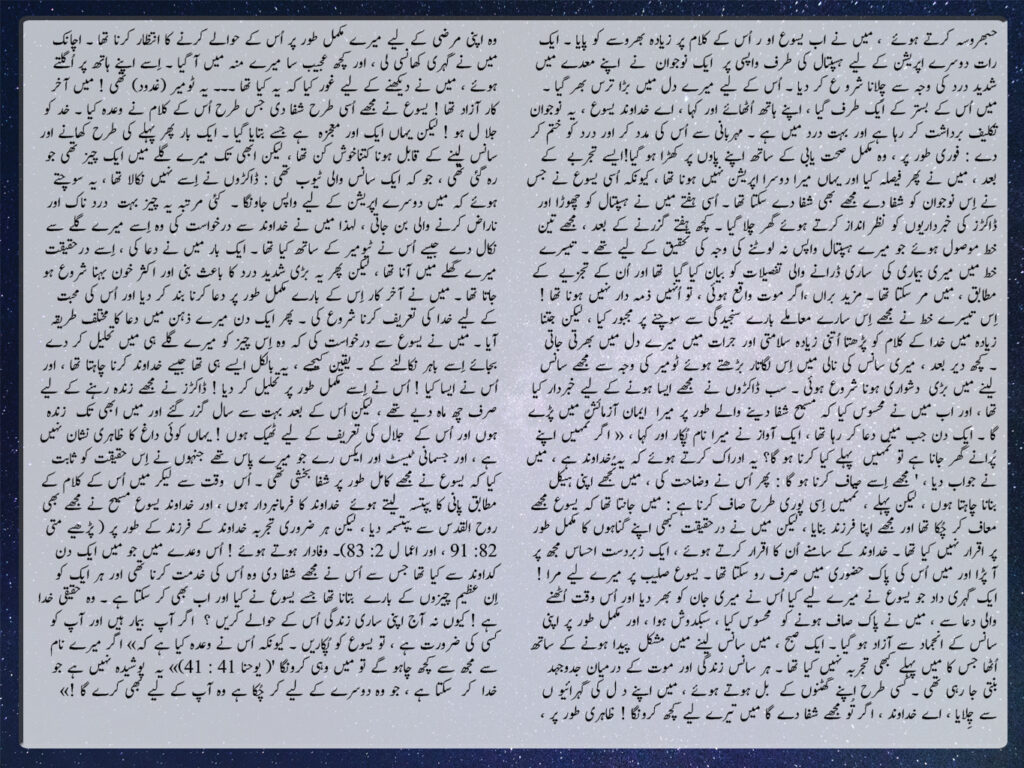 بھروسہ کرتے ہوئے ، میں نے اب یسوع او ر اُس کے کلام پر زیادہ بھروسے کو پایا ۔ ایک
رات دوسرے اپریشن کے لیے ہسپتال کی طرف واپسی پر ایک نوجوان نے اپنے معدے میں
شدید درد کی وجہ سے چلانا شروع کر دیا ۔ اُس کے لیے میرے دل میں بڑا ترس بھر گیا ۔
میں اُس کے بستر کے ایک طرف گیا ، اپنے ہاتھ اُٹھائے اور کہا ، اے خداوند یسوع ، یہ نوجوان
تکلیف برداشت کر رہا ہے اور بہت درد میں ہے ۔ مہربانی سے اُس کی مدد کر اور درد کو ختم کر
دے : فوری طور پر ، وہ مکمل صحت یابی کے ساتھ اپنے پاوں پر کھڑا ہو گیا!ایسے تجربے کے
بعد ، میں نے پھر فیصلہ کیا اور یہاں میرا دوسرا اپریشن نہیں ہونا تھا ، کیونکہ اُسی یسوع نے جس
نے اِس نوجوان کو شفا دے مجھے بھی شفا دے سکتا تھا ۔ اُسی ہفتے میں نے ہسپتال کو چھوڑا اور
ڈاکٹرز کی خبرداریوں کو نظر انداز کرتے ہوئے گھر چلا گیا ۔ کچھ ہفتے گزرنے کے بعد ، مجھے تین
خط موصول ہوئے جو میرے ہسپتال واپس نہ لوٹنے کی وجہ کی تحقیق کے لیے تھے ۔ تیسرے
خط میں میری بیماری کی ساری ڈرانے والی تفصیلات کو بیان کیا گیا تھا اور اُن کے تجزیے کے
مطابق ، میں مر سکتا تھا ۔ مزید براں ،اگر موت واقع ہوئی ، تو اُنہیں ذمہ دار نہیں ہونا تھا !
اِس تیسرے خط نے مجھے اِس سارے معاملے بارے سنجیدگی سے سوچنے پر مجبور کیا ، لیکن جتنا
زیادہ میں خدا کے کلام کو پڑھتا اُتنی زیادہ سلامتی اور جرات میں میرے دل میں بھرتی جاتی
۔ کچھ دیر بعد ، میری سانس کی نالی میں اِس لگاتار بڑھتے ہوئے ٹومیر کی وجہ سے مجھے سانس
لینے میں بڑی دشواری ہونا شروع ہوئی ۔ سب ڈاکٹروں نے مجھے ایسا ہونے کے لیے خبردار کیا
تھا ، اور اب میں نے محسوس کیا کہ مسیح شفا دینے والے طور پر میرا ایمان آزمائش میں پڑے
گا ۔ ایک دن جب میں دعا کر رہا تھا ، ایک آواز نے میرا نام پکار اور کہا ، « اگر تمہیں اپنے
پُرانے گھر جانا ہے تو تمہیں پہلے کیا کرنا ہو گا؟ یہ ادراک کرتے ہوئے کہ یہ خداوند ہے ، میں
نے جواب دیا ، 'مجھے اِسے صاف کرنا ہو گا : پھر اُس نے وضاحت کی ، میں تجھے اپنی ہیکل
بنانا چاہتا ہوں ، لیکن پہلے ، تمہیں اِسی پوری طرح صاف کرنا ہے : میں جانتا تھا کہ یسوع مجھے
معاف کر چکا تھا اور مجھے اپنا فرزند بنایا ، لیکن میں نے درحقیقت کبھی اپنے گناہوں کا مکمل طور
پر اقرار نہیں کیا تھا ۔ خداوند کے سامنے اُن کا اقرار کرتے ہوئے ، ایک زبردست احساس مجھ پر
آ پڑا اور میں اُس کی پاک حضوری میں صرف رو سکتا تھا ۔ یسوع صلیب پر میرے لیے مرا !
ایک گہری داد جو یسوع نے میرے لیے کیا اُس نے میری جان کو بھر دیا اور اُس وقت اُٹھنے
والی دعا سے ، میں نے پاک صاف ہونے کو محسوس کیا ، سبکدوش ہوا ، اور مکمل طور پر اپنی
سانس کے انجماد سے آزاد ہو گیا ۔ ایک صبح ، میں سانس لینے میں مشکل پیدا ہونے کے ساتھ
اُٹھا جس کا میں پہلے کبھی تجربہ نہیں کیا تھا ۔ ہر سانس زندگی اور موت کے درمیان جدوجہد
بنتی جا رہی تھی ۔ کسی طرح اپنے گھٹنوں کے بل ہوتے ہوئے ، میں اپنے د ل کی گہرائیو ں
سے چِلایا ، اے خداوند ، اگر تو مجھے شفا دے گا میں تیرے لیے کچھ کرونگا ! ظاہری طور پر ،
وہ اپنی مرضی کے لیے میرے مکمل طور پر اُس کے حوالے کرنے کا انتظار کرنا تھا ۔ اچانک
میں نے گہری کھانسی لی ، اور کچھ عجیب سا میرے منہ میں آ گیا ۔ اِسے اپنے ہاتھ پر اُگلتے
ہوئے ، میں نے دیکھنے کے لیے غور کیا کہ یہ کیا تھا ۔۔۔ یہ ٹومیر (غدود) تھی ! میں آخر
کار آزاد تھا ! یسوع نے مجھے اُسی طرح شفا دی جس طرح اُس کے کلام نے وعدہ کیا ۔ خد کو
جلا ل ہو ! لیکن یہاں ایک اور معجزہ ہے جسے بتایا گیا ۔ ایک بار پھر پہلے کی طرح کھانے اور
سانس لینے کے قابل ہونا کتناخوش کن تھا ، لیکن ابھی تک میرے گلے میں ایک چیز تھی جو
رہ گئی تھی ، جو کہ ایک سانس والی ٹیوب تھی : ڈاکڑوں نے اِسے نہیں نکالا تھا ، یہ سوچتے
ہوئے کہ میں دوسرے اپریشن کے لیے واپس جاونگا ۔ کئی مرتبہ یہ چیز بہت درد ناک اور
ناراض کرنے والی بن جاتی ، لہذا میں نے خداوند سے درخواست کی وہ اِسے میرے گلے سے
نکال دے جیسے اُس نے ٹومیر کے ساتھ کیا تھا ۔ ایک بار میں نے دعا کی ، اِسے درحقیقت
میرے گھلے میں آنا تھا ، لیکن پھر یہ بڑی شدید درد کا باعث بنی اور اکثر خون بہنا شروع ہو
جاتا تھا ۔ میں نے آخر کار اِس کے بارے مکمل طور پر دعا کرنا بند کر دیا اور اُس کی محبت
کے لیے خدا کی تعریف کرنا شروع کی ۔ پھر ایک دن میرے ذہن میں دعا کا مختلف طریقہ
آیا ۔ میں نے یسوع سے درخواست کی کہ وہ اِس چیز کو میرے گلے ہی میں تحلیل کر دے
بجائے اِسے باہر نکالنے کے ۔ یقین کیجیے ، یہ بالکل ایسے ہی تھا جیسے خداوند کرنا چاہتا تھا ، اور
اُس نے ایسا کیا ! اُس نے اِسے مکمل طور پر تحلیل کر دیا ! ڈاکٹرز نے مجھے زندہ رہنے کے لیے
صرف چھ ماہ دیے تھے ، لیکن اُس کے بعد بہت سے سال گزر گئے اور میں ابھی تک زندہ
ہوں اور اُس کے جلال کی تعریف کے لیے ٹھیک ہوں ! یہاں کوئی داغ کا ظاہری نشان نہیں
ہے ، اور جسمانی ٹیسٹ اور ایکس رے جو میرے پاس تھے جنہوں نے اِس حقیقت کو ثابت
کیا کہ یسوع نے مجھے کامل طور پر شفا بخشی تھی ۔ اُس وقت سے لیکر میں اُس کے کلام کے
مطابق پانی کا بپتسہ لیتے ہوئے خداوند کا فرمانبردار ہوں ، اور خداوند یسوع مسیح نے مجھے بھی
روح القدس سے بپتسمہ دیا ، لیکن ہر ضروری تجربہ خداوند کے فرزند کے طور پر ( پڑھیے متی
82: 91 ، اور اعما ل 2: 83)۔ وفادار ہوتے ہوئے ! اُس وعدے میں جو میں ایک دن
کداوند سے کیا تھا جس سے اُس نے مجھے شفا دی وہ اُس کی خدمت کرنا تھی اور ہر ایک کو
اِن عظیم چیزوں کے بارے بتانا تھا جسے یسوع نے کیا اور اب بھی کر سکتا ہے ۔ وہ حقیقی خدا
ہے ! کیوں نہ آج اپنی ساری زندگی اُس کے حوالے کریں ؟ اگر آپ بیمار ہیں اور آپ کو
کسی کی ضرورت ہے ، تو یسوع کو پُکاریں ۔ کیونکہ اُس نے وعدہ کیا ہے کہ» اگر میرے نام
سے مجھ سے کچھ چاہو گے تو میں وہی کرونگا '( یوحنا 41 : 41)»» یہ پوشیدہ نہیں ہے جو
خدا کر سکتا ہے ، جو وہ دوسرے کے لیے کر چُکا ہے وہ آپ کے لیے بھی کرے گا !»